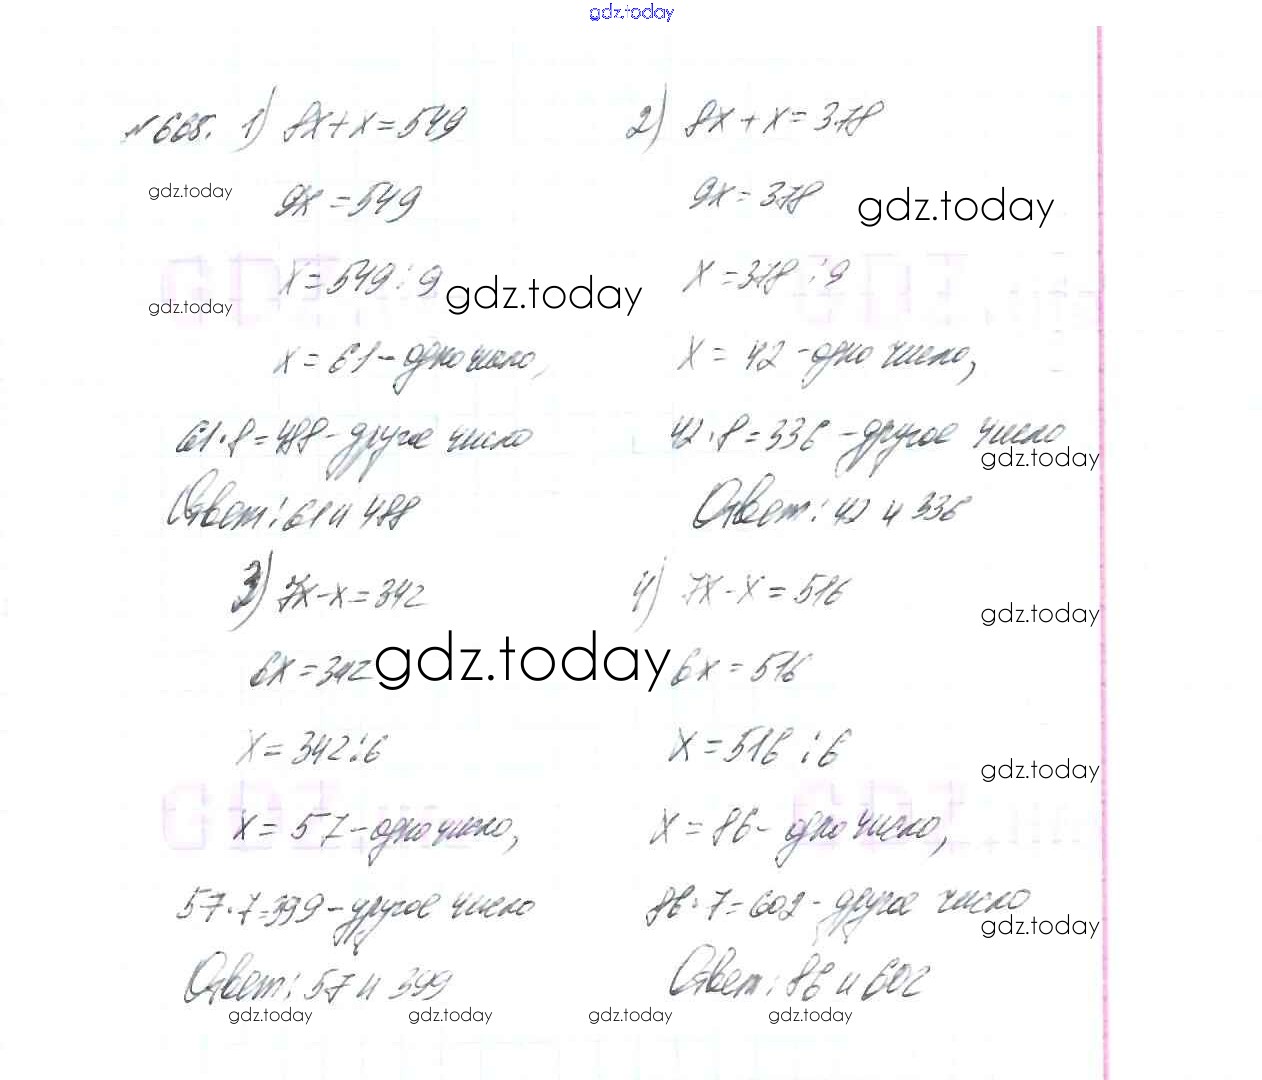 gdz.today
№668. 1) 8x+x=549
9x=549
x=549:9
x=61-одно число,
61·8=488-другое число
Ответ: 61 и 488
2) 8x+x=378
9x=378
x=378:9
x=42-одно число,
42·8=336-другое число
Ответ: 42 и 336
3) 7x-x=342
6x=342
x=342:6
x=57-одно число,
57·7=399-другое число
Ответ: 57 и 399
4) 7x-x=516
6x=516
x=516:6
x=86-одно число,
86·7=602-другое число
Ответ: 86 и 602
gdz.today
gdz.today
gdz.today
gdz.today
gdz.today
gdz.today
gdz.today
gdz.today
gdz.today
gdz.today gdz.today gdz.today gdz.today